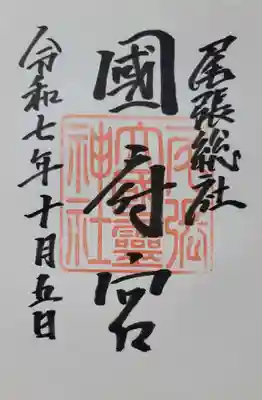 尾張総社
國府宮
令和七年十月五日
尾張
大國靈
神社